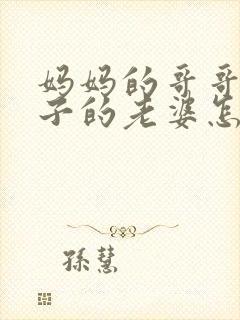 妈妈的哥哥
子的老婆怎
孫慧